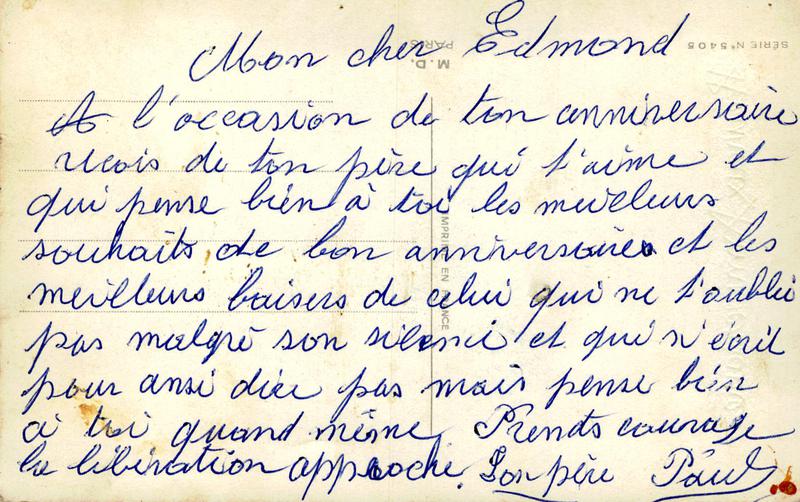 Mon cher Edmond
A l'occasion de ton anniversaire
recois de ton père qui t'aime et
qui pense bien à toi les meilleurs
souhaits de bon anniversaire et les
meilleurs baisers de celui qui ne t'oublie
pas malgré son silence et qui n'écrit
pour ansi dire pas mais pense bien
à toi quand même Prends courage
la libération approche. Ton père Paul
M.D.
PARIS
SÉRIE N° 5405
IMPRIMÉ EN FRANCE